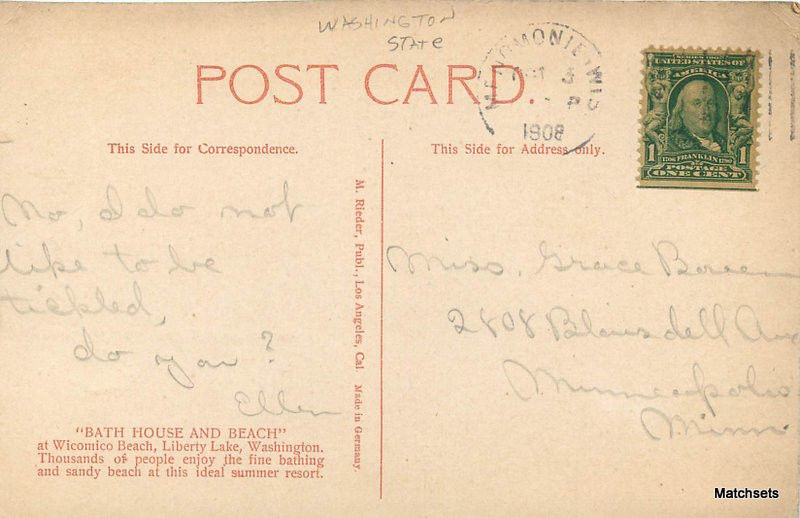 WASHINGTON
STATE
POST CARD.
MENOMONIE, WIS
3
P
1908
SERIES 1902
UNITED STATES OF
AMERICA
1
1706 FRANKLIN 1790
1
POSTAGE
ONE CENT
This Side for Correspondence.
This Side for Address only.
No, I do not
like to be
tickled,
do you?
Ellen
"BATH HOUSE AND BEACH"
at Wicomico Beach, Liberty Lake, Washington.
Thousands of people enjoy the fine bathing
and sandy beach at this ideal summer resort.
M. Rieder, Publ., Los Angeles, Cal. Made in Germany.
Miss. Grace
2808 Blaisdell Ave
Minneapolis
Minn
Matchsets